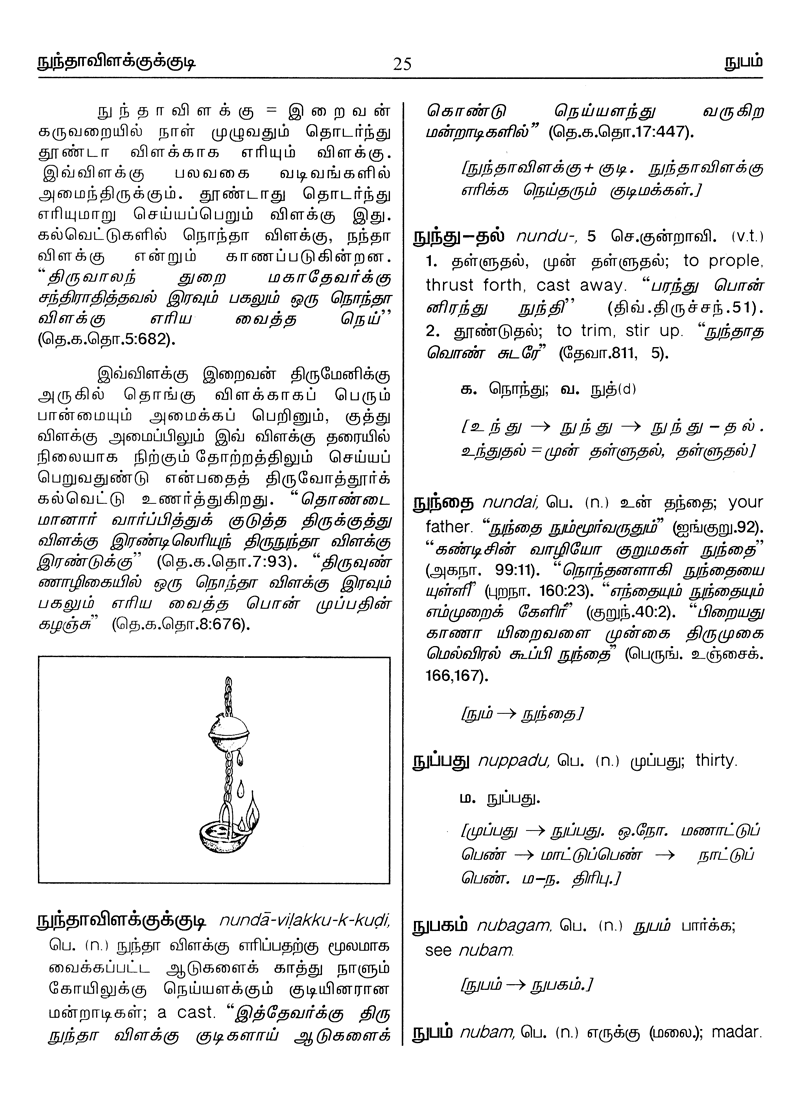 நுந்தாவிளக்குக்குடி 25 நுபம்
நுந்தாவிளக்கு = இறைவன்
கருவறையில் நாள் முழுவதும் தொடர்ந்து
தூண்டா விளக்காக எரியும் விளக்கு.
இவ்விளக்கு பலவகை வடிவங்களில்
அமைந்திருக்கும். தூண்டாது தொடர்ந்து
எரியுமாறு செய்யப்பெறும் விளக்கு இது.
கல்வெட்டுகளில் நொந்தா விளக்கு, நந்தா
விளக்கு என்றும் காணப்படுகின்றன.
“திருவாலந் துறை மகாதேவர்க்கு
சந்திராதித்தவல் இரவும் பகலும் ஒரு நொந்தா
விளக்கு எரிய வைத்த நெய்’’
(தெ.க.தொ.5:682).
இவ்விளக்கு இறைவன் திருமேனிக்கு
அருகில் தொங்கு விளக்காகப் பெரும்
பான்மையும் அமைக்கப் பெறினும், குத்து
விளக்கு அமைப்பிலும் இவ் விளக்கு தரையில்
நிலையாக நிற்கும் தோற்றத்திலும் செய்யப்
பெறுவதுண்டு என்பதைத் திருவோத்தூர்க்
கல்வெட்டு உணர்த்துகிறது. “தொண்டை
மானார் வார்ப்பித்துக் குடுத்த திருக்குத்து
விளக்கு இரண்டிலெரியுந் திருநுந்தா விளக்கு
இரண்டுக்கு” (தெ.க.தொ.7:93). “திருவுண்
ணாழிகையில் ஒரு நொந்தா விளக்கு இரவும்
பகலும் எரிய வைத்த பொன் முப்பதின்
கழஞ்சு” (தெ.க.தொ.8:676).
நுந்தாவிளக்குக்குடி nundā-viḷakku-k-kuḍi,
பெ. (n.) நுந்தா விளக்கு எரிப்பதற்கு மூலமாக
வைக்கப்பட்ட ஆடுகளைக் காத்து நாளும்
கோயிலுக்கு நெய்யளக்கும் குடியினரான
மன்றாடிகள்; a cast. “இத்தேவர்க்கு திரு
நுந்தா விளக்கு குடிகளாய் ஆடுகளைக்
கொண்டு நெய்யளந்து வருகிற
மன்றாடிகளில்” (தெ.க.தொ.17:447).
[நுந்தாவிளக்கு+ குடி. நுந்தாவிளக்கு
எரிக்க நெய்தரும் குடிமக்கள்.]
நுந்து-தல் nundu-, 5 செ.குன்றாவி. (v.t.)
1. தள்ளுதல், முன் தள்ளுதல்; to prople,
thrust forth, cast away. “பரந்து பொன்
னிரந்து நுந்தி’’ (திவ்.திருச்சந்.51).
2. தூண்டுதல்; to trim, stir up. “நுந்தாத
வொண் சுடரே” (தேவா.811, 5).
க. நொந்து; வ. நுத்(d)
[உந்து → நுந்து → நுந்து-தல்.
உந்துதல் = முன் தள்ளுதல், தள்ளுதல்]
நுந்தை nundai, பெ. (n.) உன் தந்தை; your
father. “நுந்தை நும்மூர்வருதும்” (ஐங்குறு.92).
“கண்டிசின் வாழியோ குறுமகள் நுந்தை”
(அகநா. 99:11). “நொந்தனளாகி நுந்தையை
யுள்ளி” (புறநா. 160:23). “எந்தையும் நுந்தையும்
எம்முறைக் கேளிர்” (குறுந்.40:2). “பிறையது
காணா யிறைவளை முன்கை திருமுகை
மெல்விரல் கூப்பி நுந்தை” (பெருங். உஞ்சைக்.
166,167).
[நும் → நுந்தை]
நுப்பது nuppadu, பெ. (n.) முப்பது; thirty.
ம. நுப்பது.
[முப்பது → நுப்பது. ஒ.நோ. மணாட்டுப்
பெண் → மாட்டுப்பெண் → நாட்டுப்
பெண். ம-ந. திரிபு.]
நுபகம் nubagam, பெ. (n.) நுபம் பார்க்க;
see nubam.
[நுபம் → நுபகம்.]
நுபம் nubam, பெ. (n.) எருக்கு (மலை.); madar.